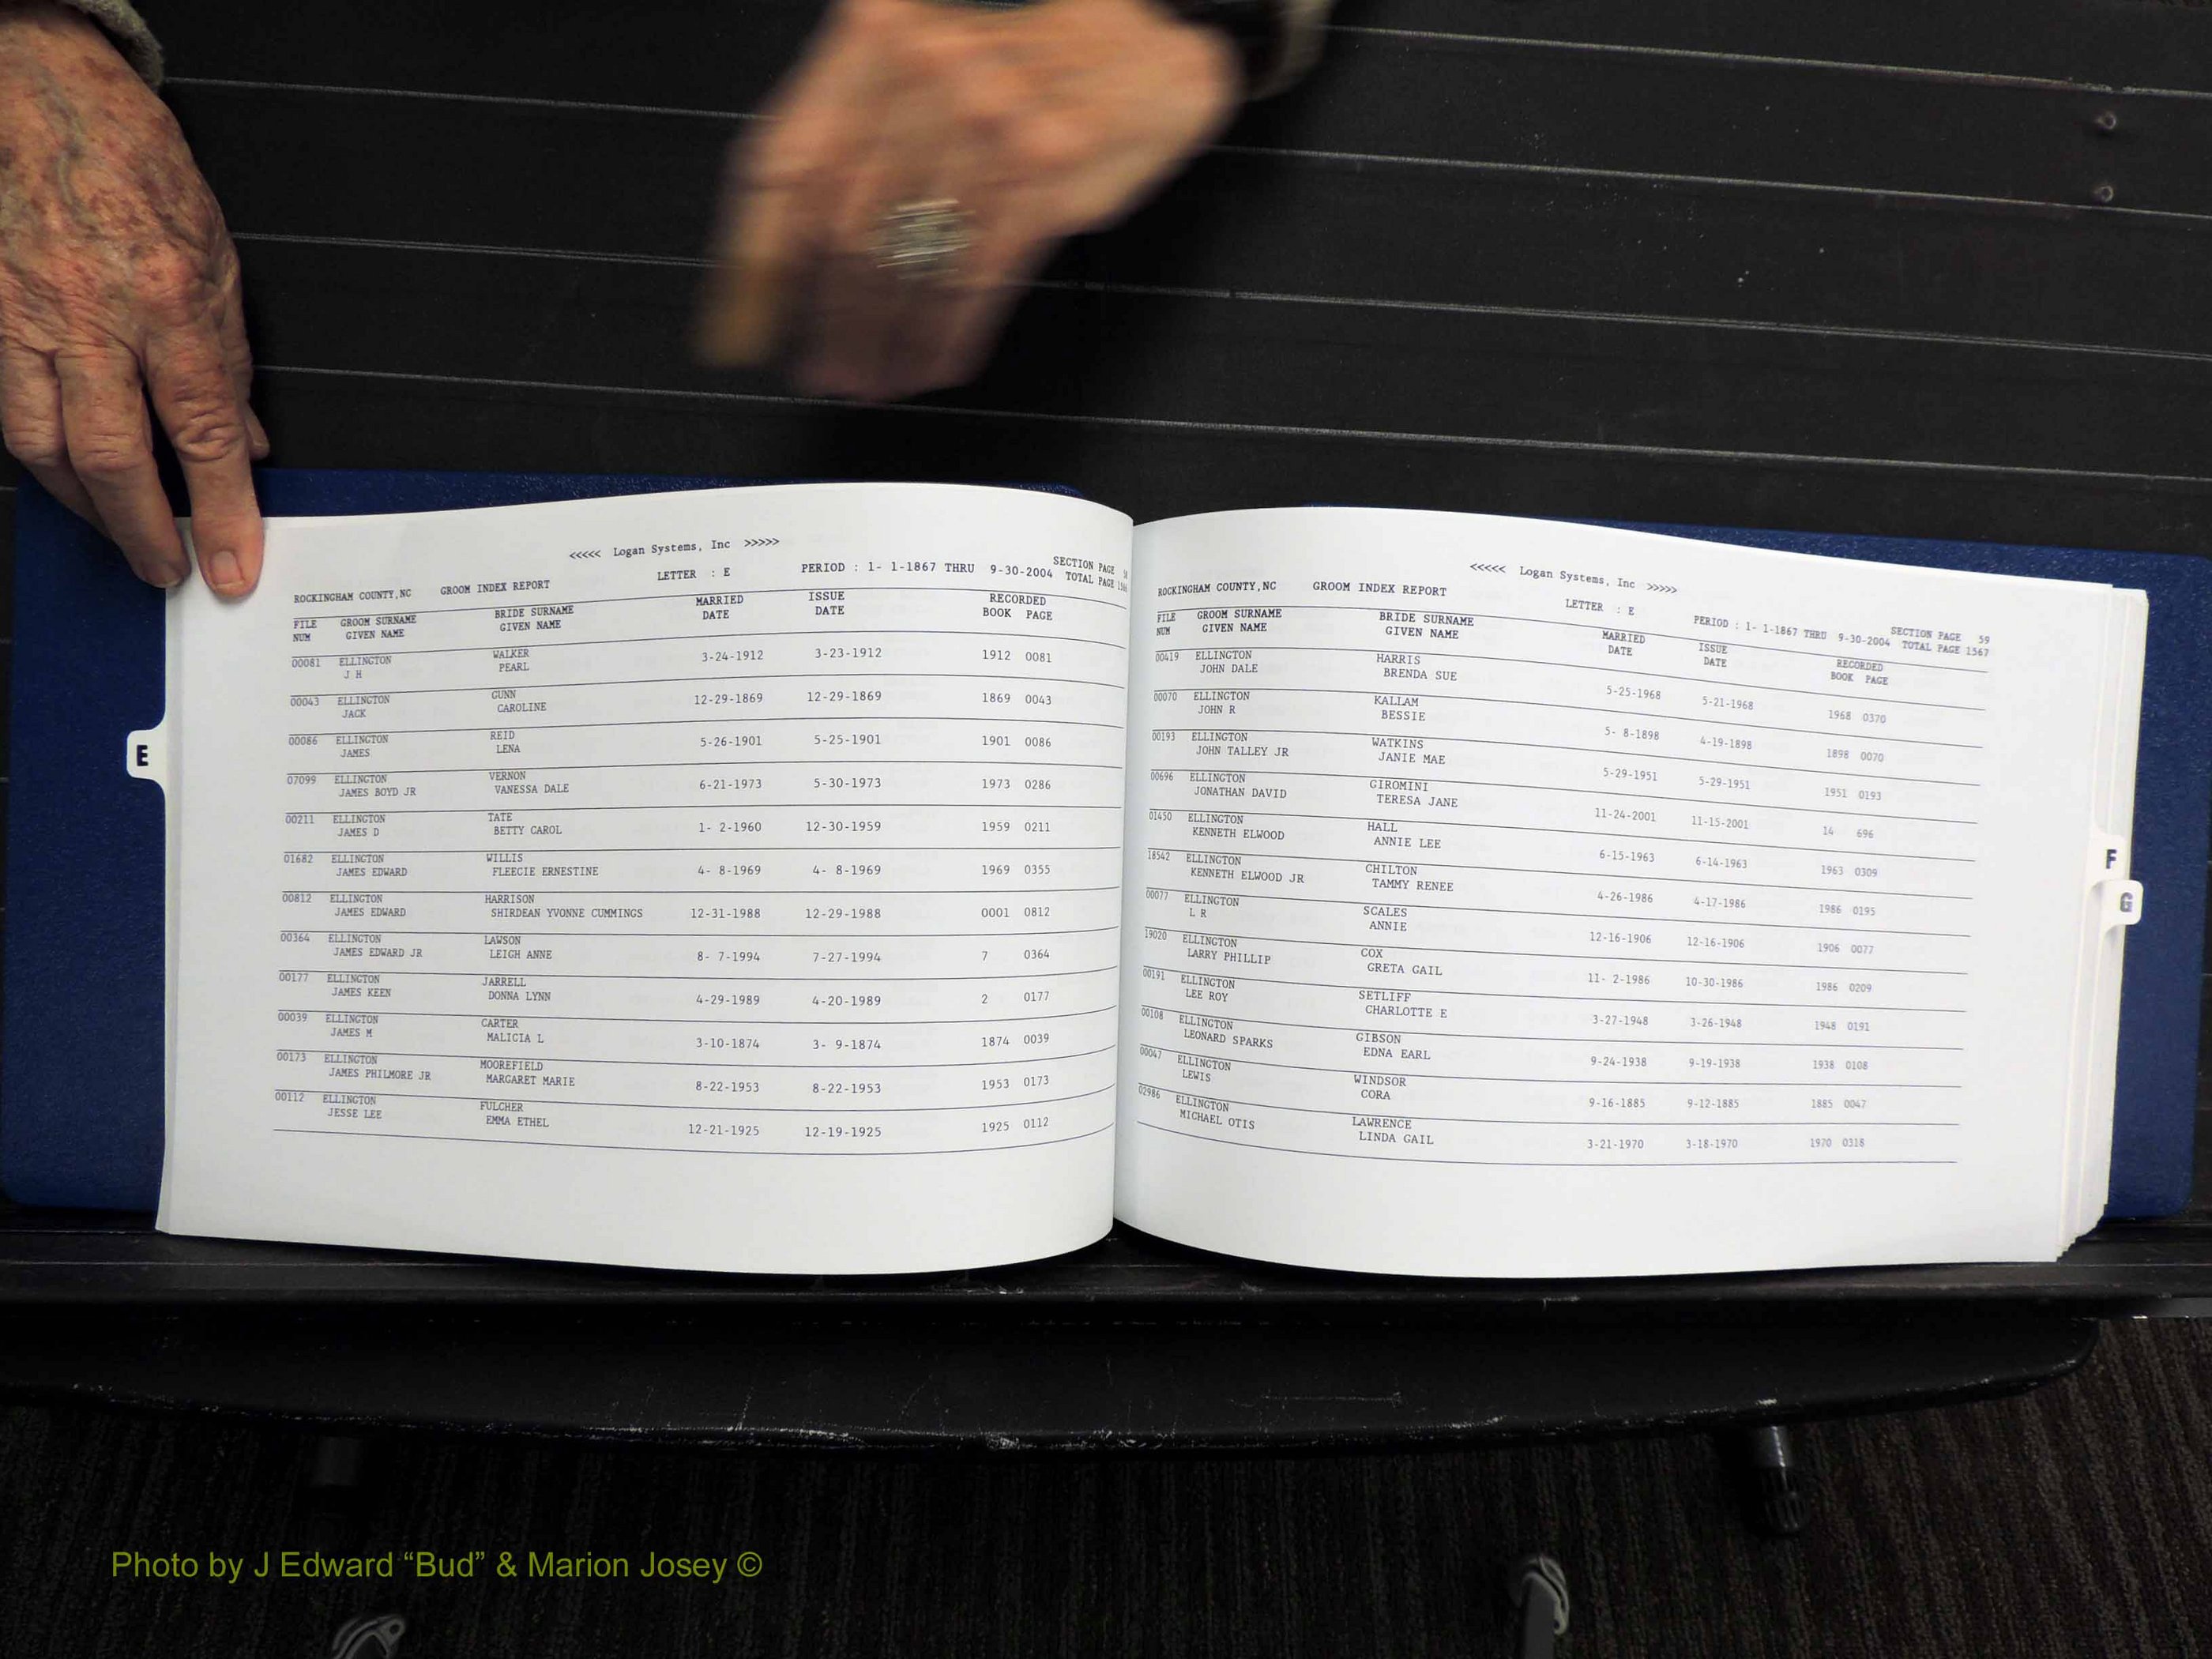 <<<<< Logan Systems, Inc >>>>>
ROCKINGHAM COUNTY,NC GROOM INDEX REPORT LETTER : E PERIOD : 1- 1-1867 THRU 9-30-2004 SECTION PAGE
TOTAL PAGE
FILE GROOM SURNAME BRIDE SURNAME MARRIED ISSUE RECORDED
NUM GIVEN NAME GIVEN NAME DATE DATE BOOK PAGE
00081 ELLINGTON WALKER 3-24-1912 3-23-1912 1912 0081
J H PEARL
00043 ELLINGTON GUNN 12-29-1869 12-29-1869 1869 0043
JACK CAROLINE
00086 ELLINGTON REID 5-26-1901 5-25-1901 1901 0086
JAMES LENA
07099 ELLINGTON VERNON 6-21-1973 5-30-1973 1973 0286
JAMES BOYD JR VANESSA DALE
00211 ELLINGTON TATE 1- 2-1960 12-30-1959 1959 0211
JAMES D BETTY CAROL
01682 ELLINGTON WILLIS 4- 8-1969 4- 8-1969 1969 0355
JAMES EDWARD FLEECIE ERNESTINE
00812 ELLINGTON HARRISON 12-31-1988 12-29-1988 0001 0812
JAMES EDWARD SHIRDEAN YVONNE CUMMINGS
00364 ELLINGTON LAWSON 8- 7-1994 7-27-1994 7 0364
JAMES EDWARD JR LEIGH ANNE
00177 ELLINGTON JARRELL 4-29-1989 4-20-1989 2 0177
JAMES KEEN DONNA LYNN
00039 ELLINGTON CARTER 3-10-1874 3- 9-1874 1874 0039
JAMES M MALICIA L
00173 ELLINGTON MOOREFIELD 8-22-1953 8-22-1953 1953 0173
JAMES PHILMORE JR MARGARET MARIE
00112 ELLINGTON FULCHER 12-21-1925 12-19-1925 1925 0112
JESSE LEE EMMA ETHEL
E
<<<<< Logan Systems, Inc >>>>>
ROCKINGHAM COUNTY,NC GROOM INDEX REPORT LETTER : E PERIOD : 1- 1-1867 THRU 9-30-2004 SECTION PAGE 59
TOTAL PAGE 1567
FILE GROOM SURNAME BRIDE SURNAME MARRIED ISSUE RECORDED
NUM GIVEN NAME GIVEN NAME DATE DATE BOOK PAGE
00419 ELLINGTON HARRIS 5-25-1968 5-21-1968 1968 0370
JOHN DALE BRENDA SUE
00070 ELLINGTON KALLAM 5- 8-1898 4-19-1898 1898 0070
JOHN R BESSIE
00193 ELLINGTON WATKINS 5-29-1951 5-29-1951 1951 0193
JOHN TALLEY JR JANIE MAE
00696 ELLINGTON GIROMINI 11-24-2001 11-15-2001 14 696
JONATHAN DAVID TERESA JANE
01450 ELLINGTON HALL 6-15-1963 6-14-1963 1963 0309
KENNETH ELWOOD ANNIE LEE
18542 ELLINGTON CHILTON 4-26-1986 4-17-1986 1986 0195
KENNETH ELWOOD JR TAMMY RENEE
00077 ELLINGTON SCALES 12-16-1906 12-16-1906 1906 0077
L R ANNIE
19020 ELLINGTON COX 11- 2-1986 10-30-1986 1986 0209
LARRY PHILLIP GRETA GAIL
00191 ELLINGTON SETLIFF 3-27-1948 3-26-1948 1948 0191
LEE ROY CHARLOTTE E
00108 ELLINGTON GIBSON 9-24-1938 9-19-1938 1938 0108
LEONARD SPARKS EDNA EARL
00047 ELLINGTON WINDSOR 9-16-1885 9-12-1885 1885 0047
LEWIS CORA
02986 ELLINGTON LAWRENCE 3-21-1970 3-18-1970 1970 0318
MICHAEL OTIS LINDA GAIL
F
G
Photo by J Edward “Bud” & Marion Josey ©